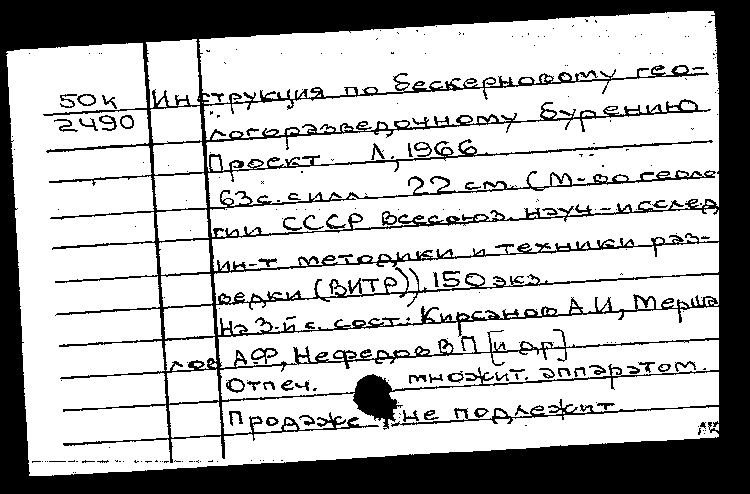 50к Инструкция по бескерновому гео-
2490 логоразведочному бурению
Проект Л, 1966.
63с. с илл. 22 см. (М-во геоло
гии СССР Всесоюз. науч-исслед
ин-т методики и техники раз-
ведки (ВИТР)). 150 экз.
На 3-й с. сост.: Кирсанов А.И, Мерша
лов А Ф, Нефедов В П [и др]
Отпеч. множит. аппаратом.
Продаже не подлежит.
ЛК